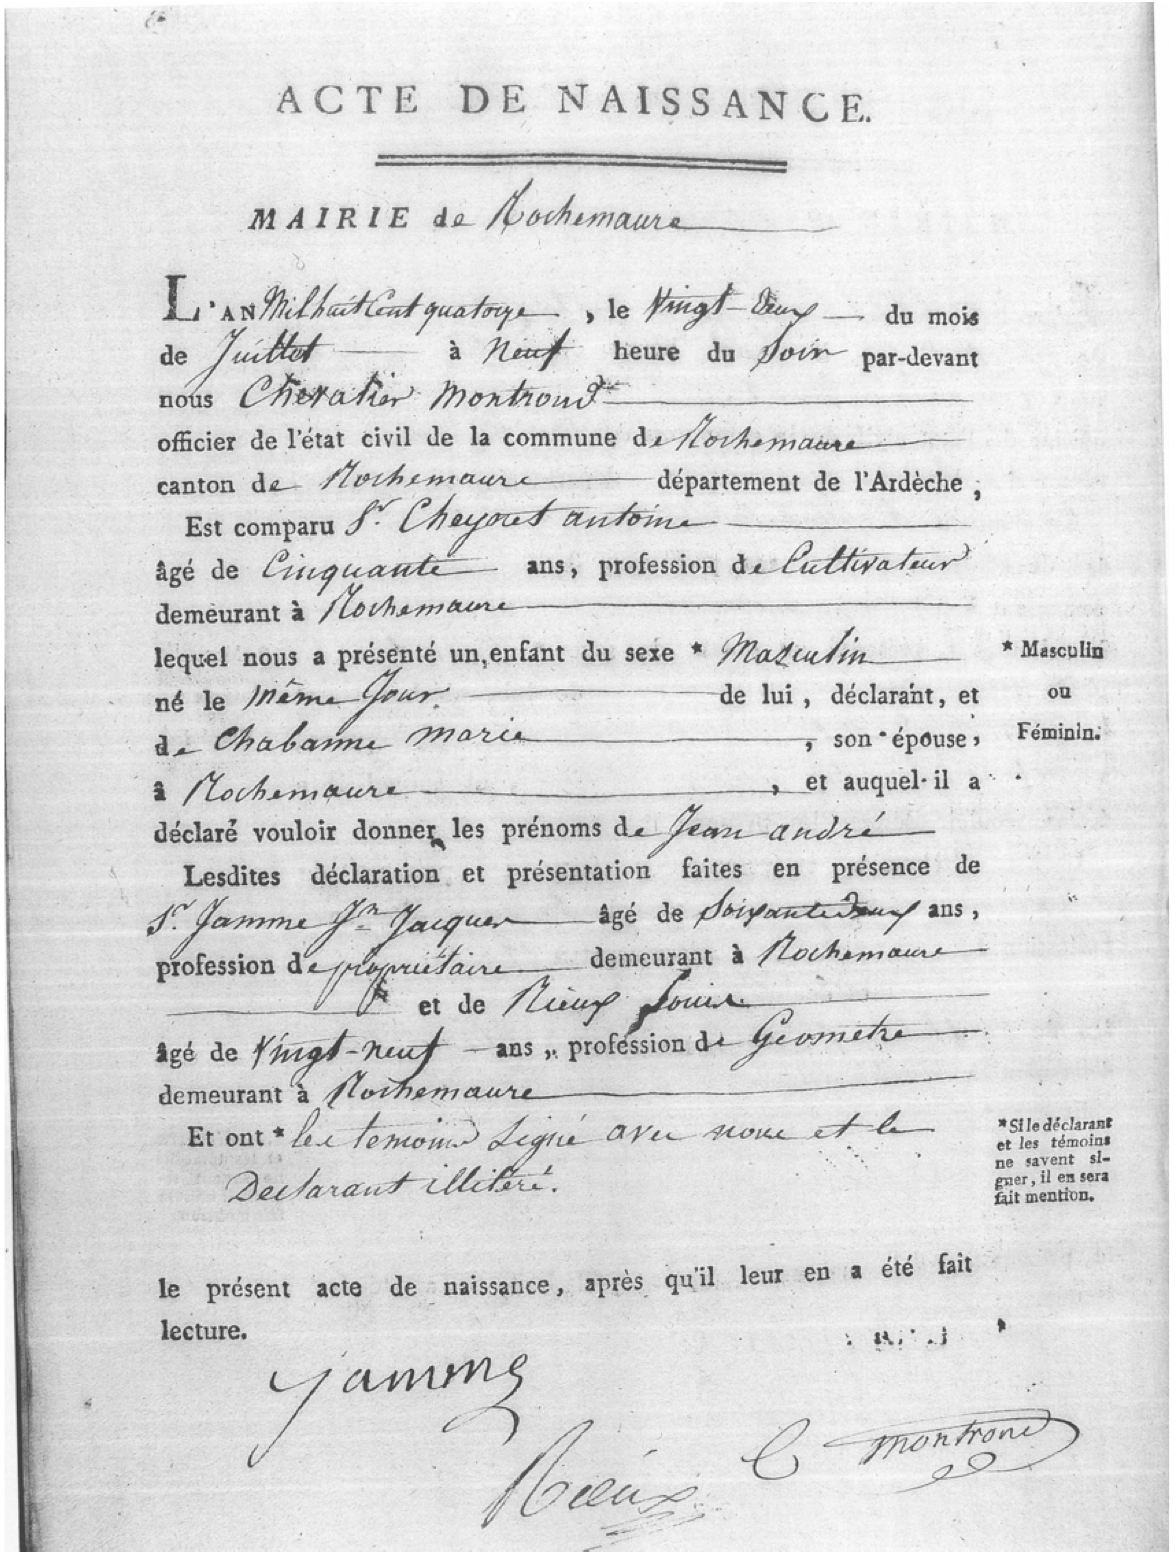 ACTE DE NAISSANCE.
MAIRIE de Rochemaure
L'AN Mil huit Cent quatorze, le Vingt-Deux du mois
de Juillet à Neuf heure du Soir par-devant
nous Chevalier Montrond
officier de l'état civil de la commune de Rochemaure
canton de Rochemaure département de l'Ardèche;
Est comparu Sr. Cheynet antoine
âgé de Cinquante ans, profession de Cultivateur
demeurant à Rochemaure
lequel nous a présenté un enfant du sexe * Masculin
* Masculin
ou
Féminin.
né le même Jour de lui, déclarant, et
de Chabanne marie, son épouse,
à Rochemaure, et auquel il a
déclaré vouloir donner les prénoms de Jean andré
Lesdites déclaration et présentation faites en présence de
Sr. Jamme Jn Jacques âgé de Soixante Deux ans,
profession de propriétaire demeurant à Rochemaure
et de Rieux Louis
âgé de Vingt-neuf ans, profession de Géometre
demeurant à Rochemaure
Et ont * les temoins Signé avec nous et le
Declarant illiteré.
* Si le déclarant
et les témoins
ne savent si-
gner, il en sera
fait mention.
le présent acte de naissance, après qu'il leur en a été fait
lecture.
Jamme
Rieux
C montrond